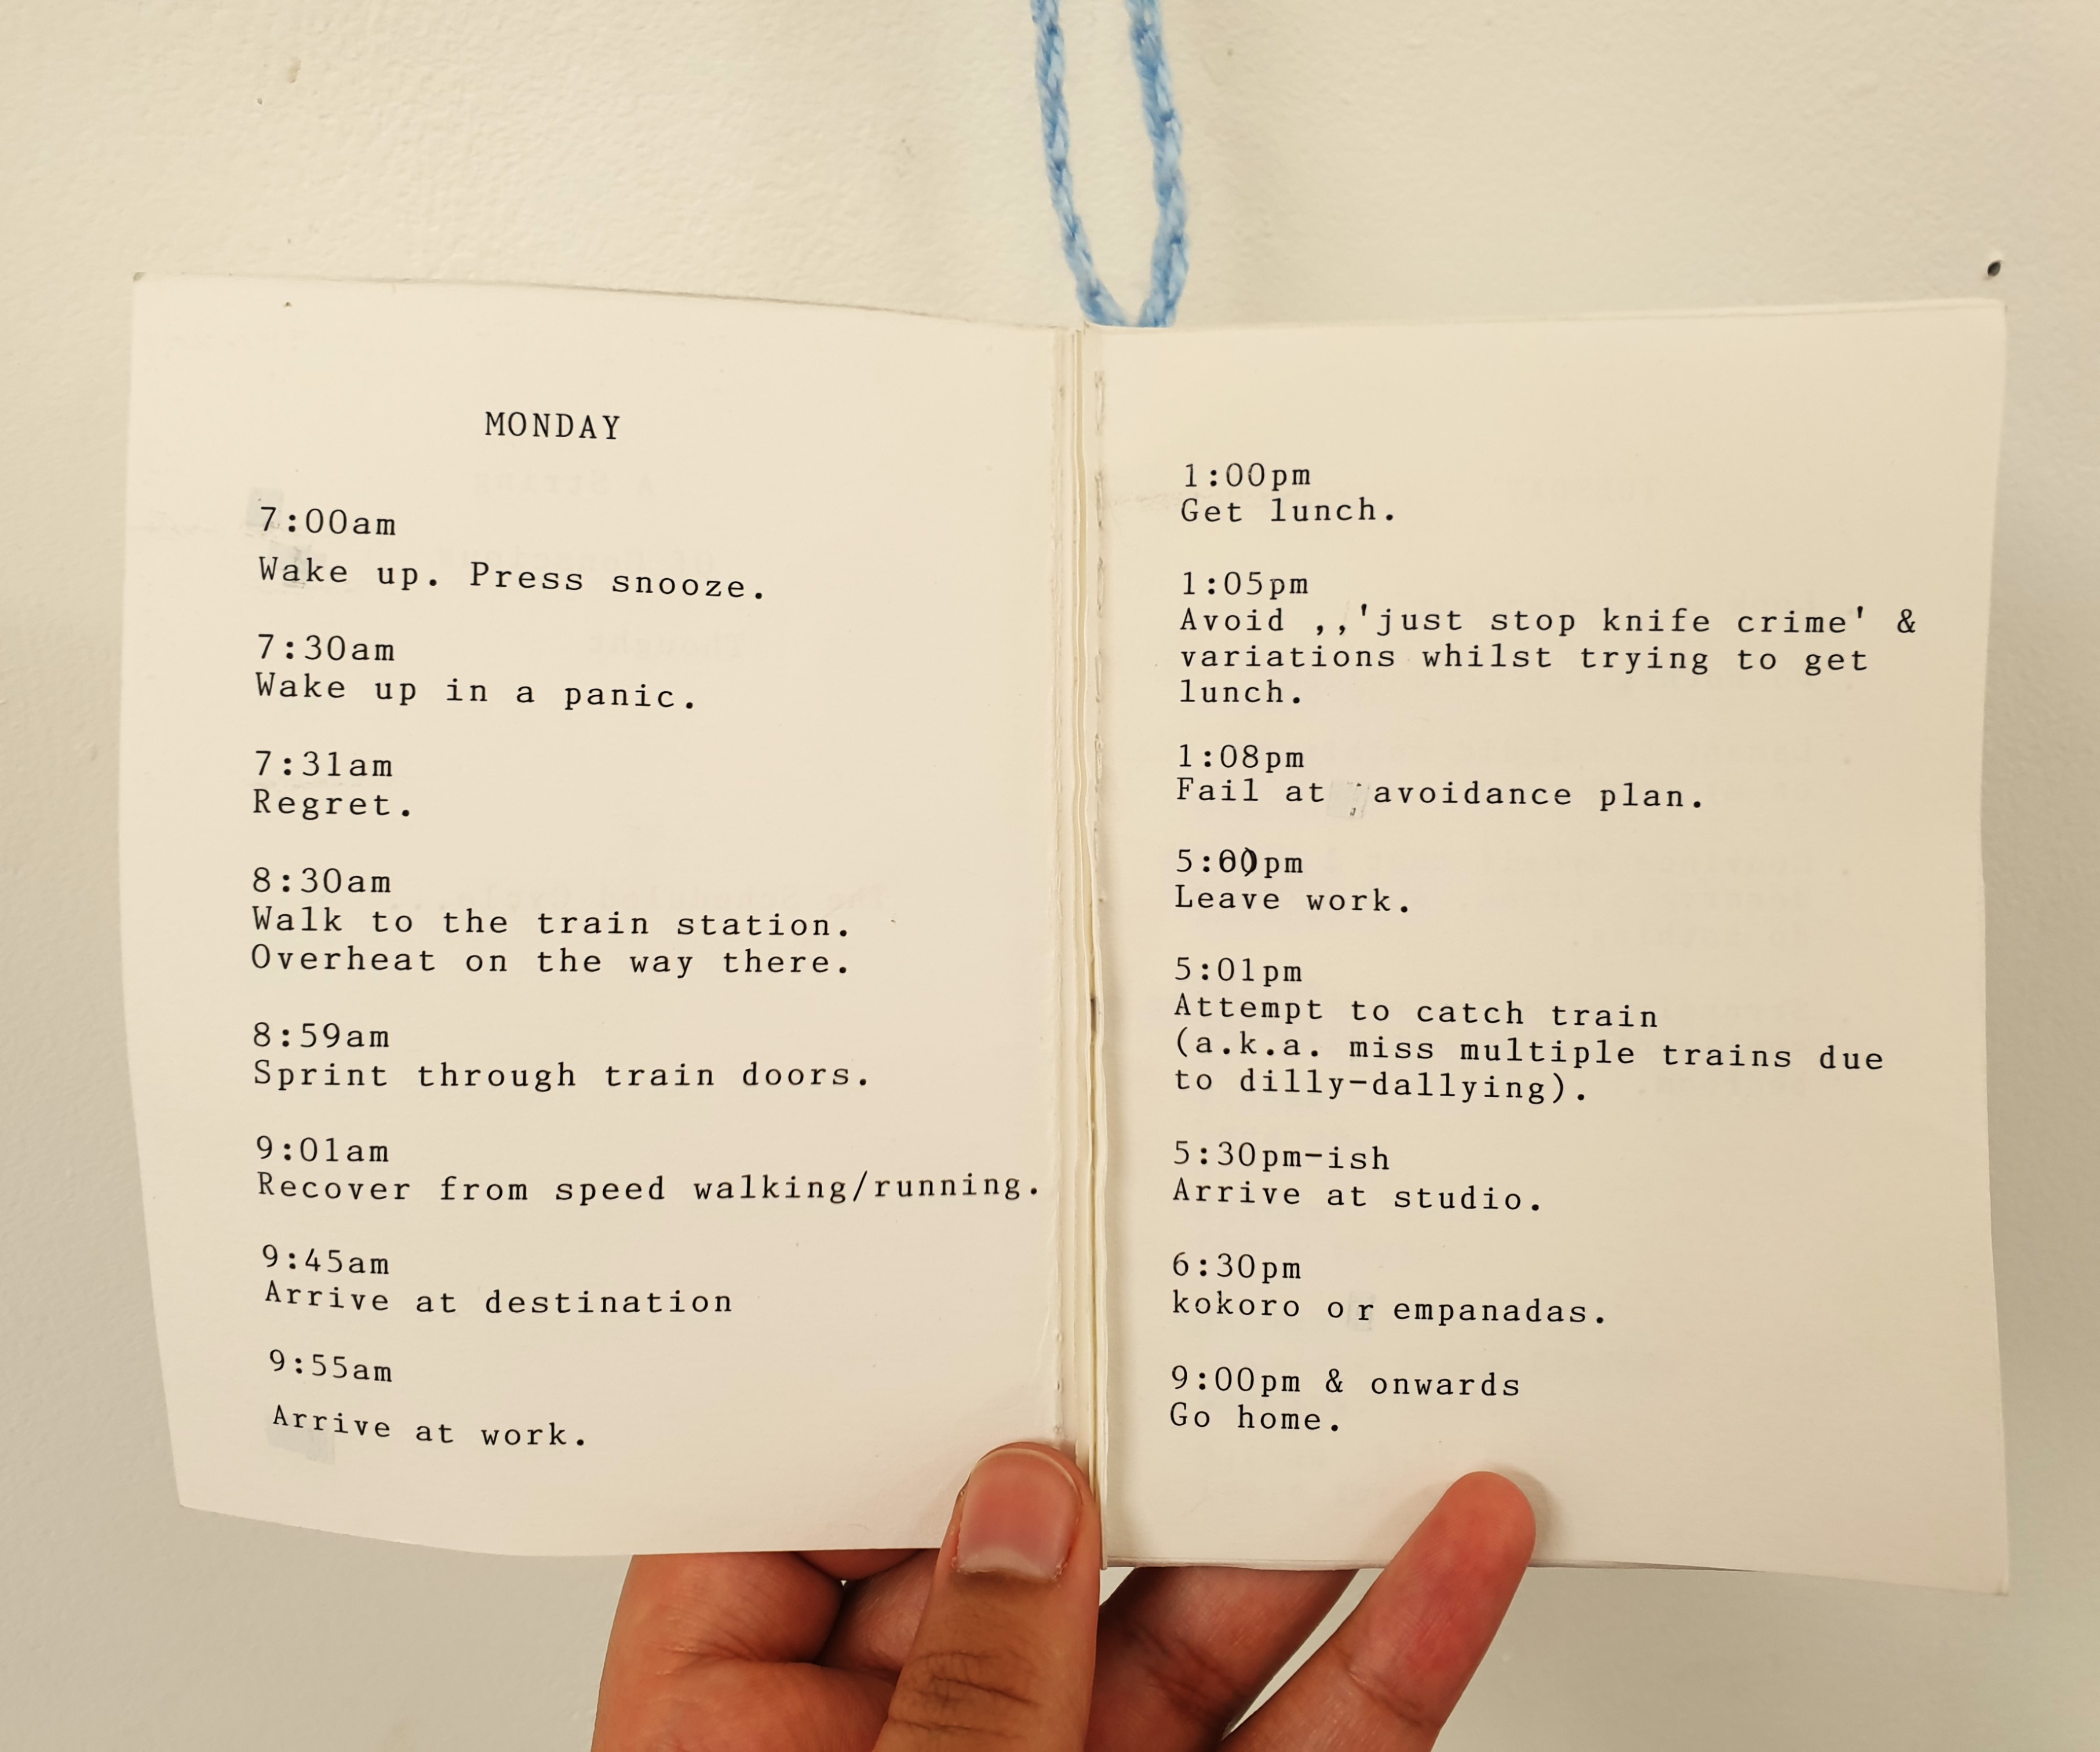 MONDAY
7:00am
Wake up. Press snooze.
7:30am
Wake up in a panic.
7:31am
Regret.
8:30am
Walk to the train station.
Overheat on the way there.
8:59am
Sprint through train doors.
9:01am
Recover from speed walking/running.
9:45am
Arrive at destination
9:55am
Arrive at work.
1:00pm
Get lunch.
1:05pm
Avoid ,,'just stop knife crime' &
variations whilst trying to get
lunch.
1:08pm
Fail at avoidance plan.
5:00pm
Leave work.
5:01pm
Attempt to catch train
(a.k.a. miss multiple trains due
to dilly-dallying).
5:30pm-ish
Arrive at studio.
6:30pm
kokoro or empanadas.
9:00pm & onwards
Go home.